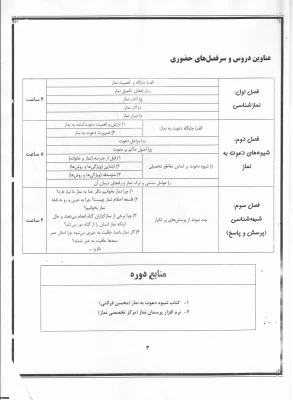 عناوین دروس و سرفصل‌های حضوری
فصل اول:
نمازشناسی
الف) جایگاه و اهمیت نماز
ب) راه‌های تکمیل نماز
ج) آداب نماز
د) آثار نماز
ه) اسرار نماز
۴ ساعت
فصل دوم:
شیوه‌های دعوت به
نماز
الف) جایگاه دعوت به نماز:
۱) ارزش و اهمیت دعوت‌کننده به نماز
۲) ضرورت دعوت به نماز
ب) مراحل دعوت
ج) اصول حاکم بر دعوت
د) شیوه دعوت بر اساس مقاطع تحصیلی
۱) قبل از مدرسه (نماز و خانواده)
۲) ابتدایی (ویژگی‌ها و روش‌ها)
۳) متوسطه (ویژگی‌ها و روش‌ها)
ه) عوامل سستی و ترک نماز و راه‌های درمان آن
۸ ساعت
فصل سوم:
شبهه‌شناسی
(پرسش و پاسخ)
چند نمونه از پرسش‌های پر تکرار
۱) چرا نماز بخوانیم مگر خدا به نماز ما نیاز دارد؟
۲) فلسفه احکام نماز چیست؟ چرا به عربی و رو به قبله
نماز بخوانیم؟
۳) چرا برخی از نمازگزاران گناه انجام می‌دهند و حال
اینکه نماز انسان را از گناه دور می‌کند؟
۴) اگر نماز باعث عاقبت به خیری می‌شود چرا امثال عمر
سعدها عاقبت به خیر نشدند؟
۵) و ...
۴ ساعت
منابع دوره
۱- کتاب شیوه دعوت به نماز (محسن قرائتی)
۲- نرم افزار پرسمان نماز (مرکز تخصصی نماز)
۳